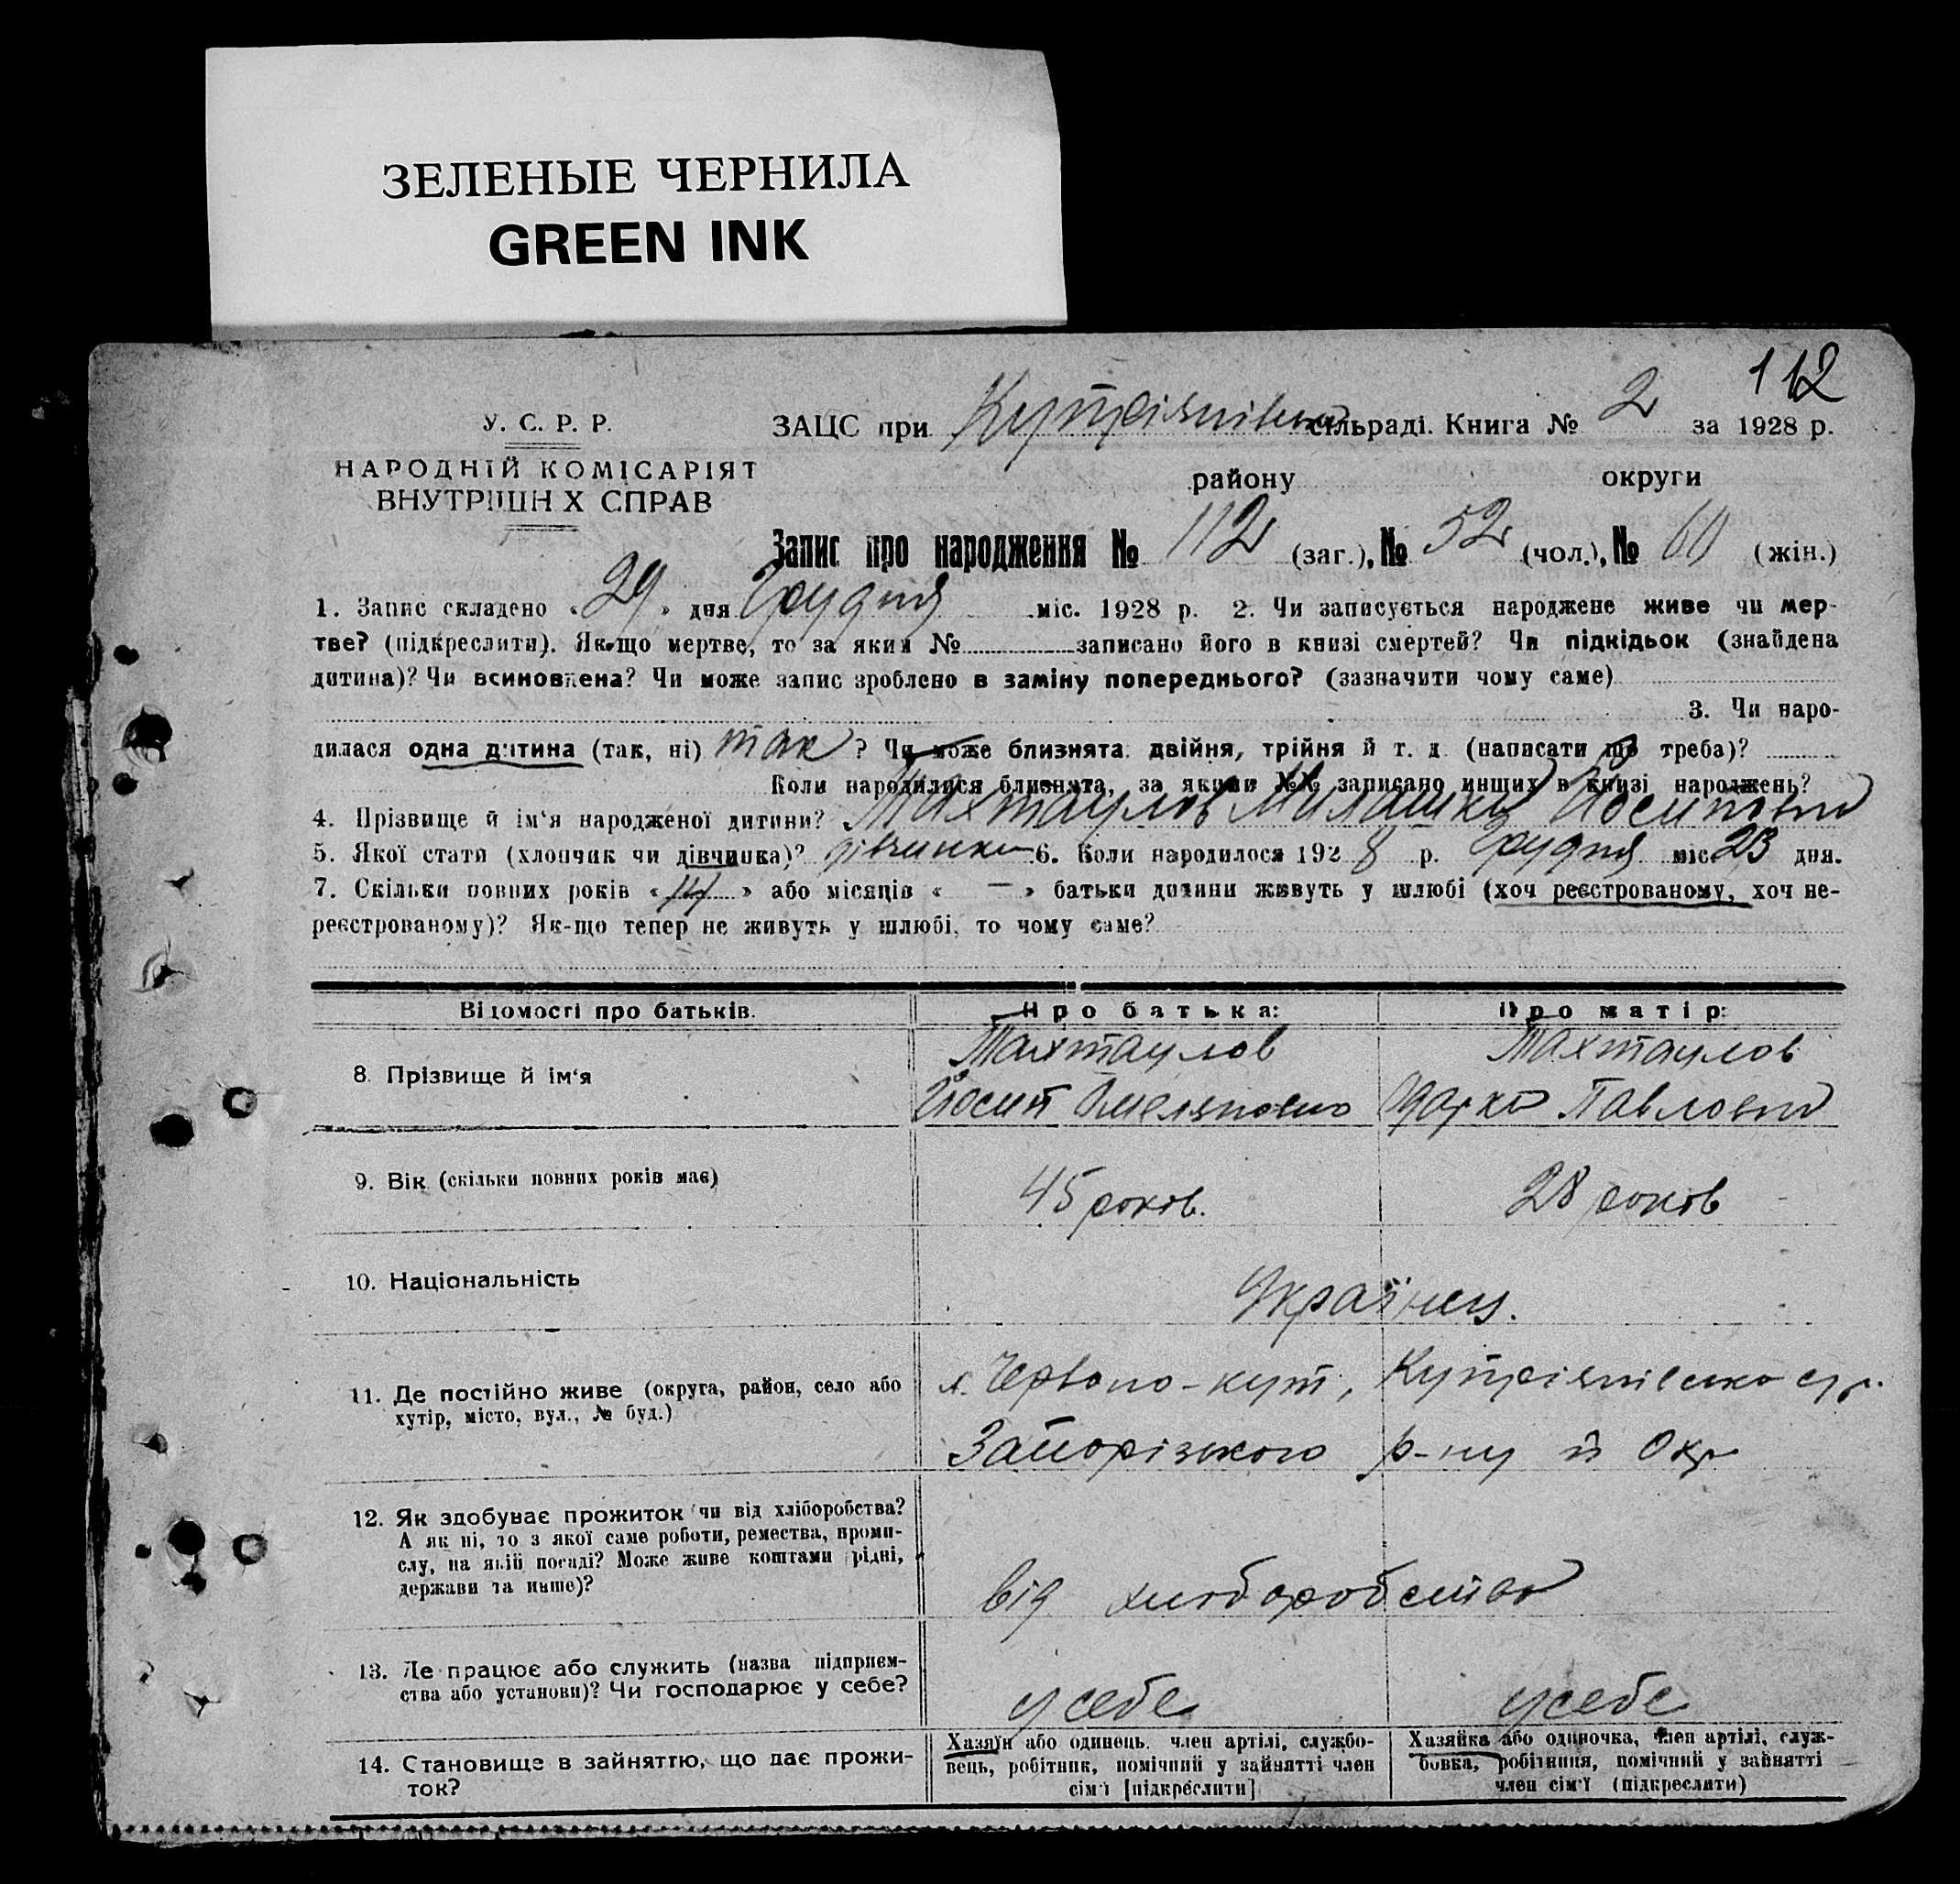 ЗЕЛЕНЫЕ ЧЕРНИЛА
GREEN INK
112
У. С. Р. Р.
ЗАЦС при Купріянівськ сільраді. Книга № 2 за 1928 р.
НАРОДНІЙ КОМІСАРІЯТ
ВНУТРІШНІХ СПРАВ
району округи
Запис про народження № 112 (заг.), № 52 (чол.), № 60 (жін.)
1. Запис складено «29» дня Грудня міс. 1928 р. 2. Чи записується народжене живе чи мер-
тве? (підкреслити). Як-що мертве, то за яким № записано його в книзі смертей? Чи підкідьок (знайдена
дитина)? Чи всиновлена? Чи може запис зроблено в заміну попереднього? (зазначити чому саме)
3. Чи наро-
дилася одна дитина (так, ні) так? Чи може близнята: двійня, трійня й т. д. (написати що треба)?
Коли народилися близнята, за якими №№ записано инших в книзі народжень?
4. Прізвище й ім'я народженої дитини? Тахтаулов Йосиповна
5. Якої стати (хлопчик чи дівчинка)? дівчинка 6. Коли народилося 1928 р. Грудня міс 23 дня.
7. Скільки повних років « » або місяців « — » батьки дитини живуть у шлюбі (хоч реєстрованому, хоч не-
реєстрованому)? Як-що тепер не живуть у шлюбі, то чому саме?
Відомості про батьків. Про батька: Про матір:
8. Прізвище й ім'я
Тахтаулов Тахтаулов
Йосип Омелянович Одарка Павловна
9. Вік (скільки повних років має) 45 років. 28 років
10. Національність Українец.
11. Де постійно живе (округа, район, село або
хутір, місто, вул., № буд.)
х. Червоно-кут, Купріянівсько с/р.
Запорізького р-ну й Окр
12. Як здобуває прожиток чи від хліборобства?
А як ні, то з якої саме роботи, ремества, проми-
слу, на якій посаді? Може живе коштами рідні,
держави та инше)?
від хліборобства
13. Де працює або служить (назва підприєм-
ства або установи)? Чи господарює у себе?
у себе у себе
14. Становище в зайняттю, що дає прожи-
ток?
Хазяїн або одинець, член артілі, службо-
вець, робітник, помічний у зайнятті член
сім'ї [підкреслити]
Хазяйка або одиночка, член артілі, служ-
бовка, робітниця, помічний у зайнятті
член сім'ї (підкреслити)